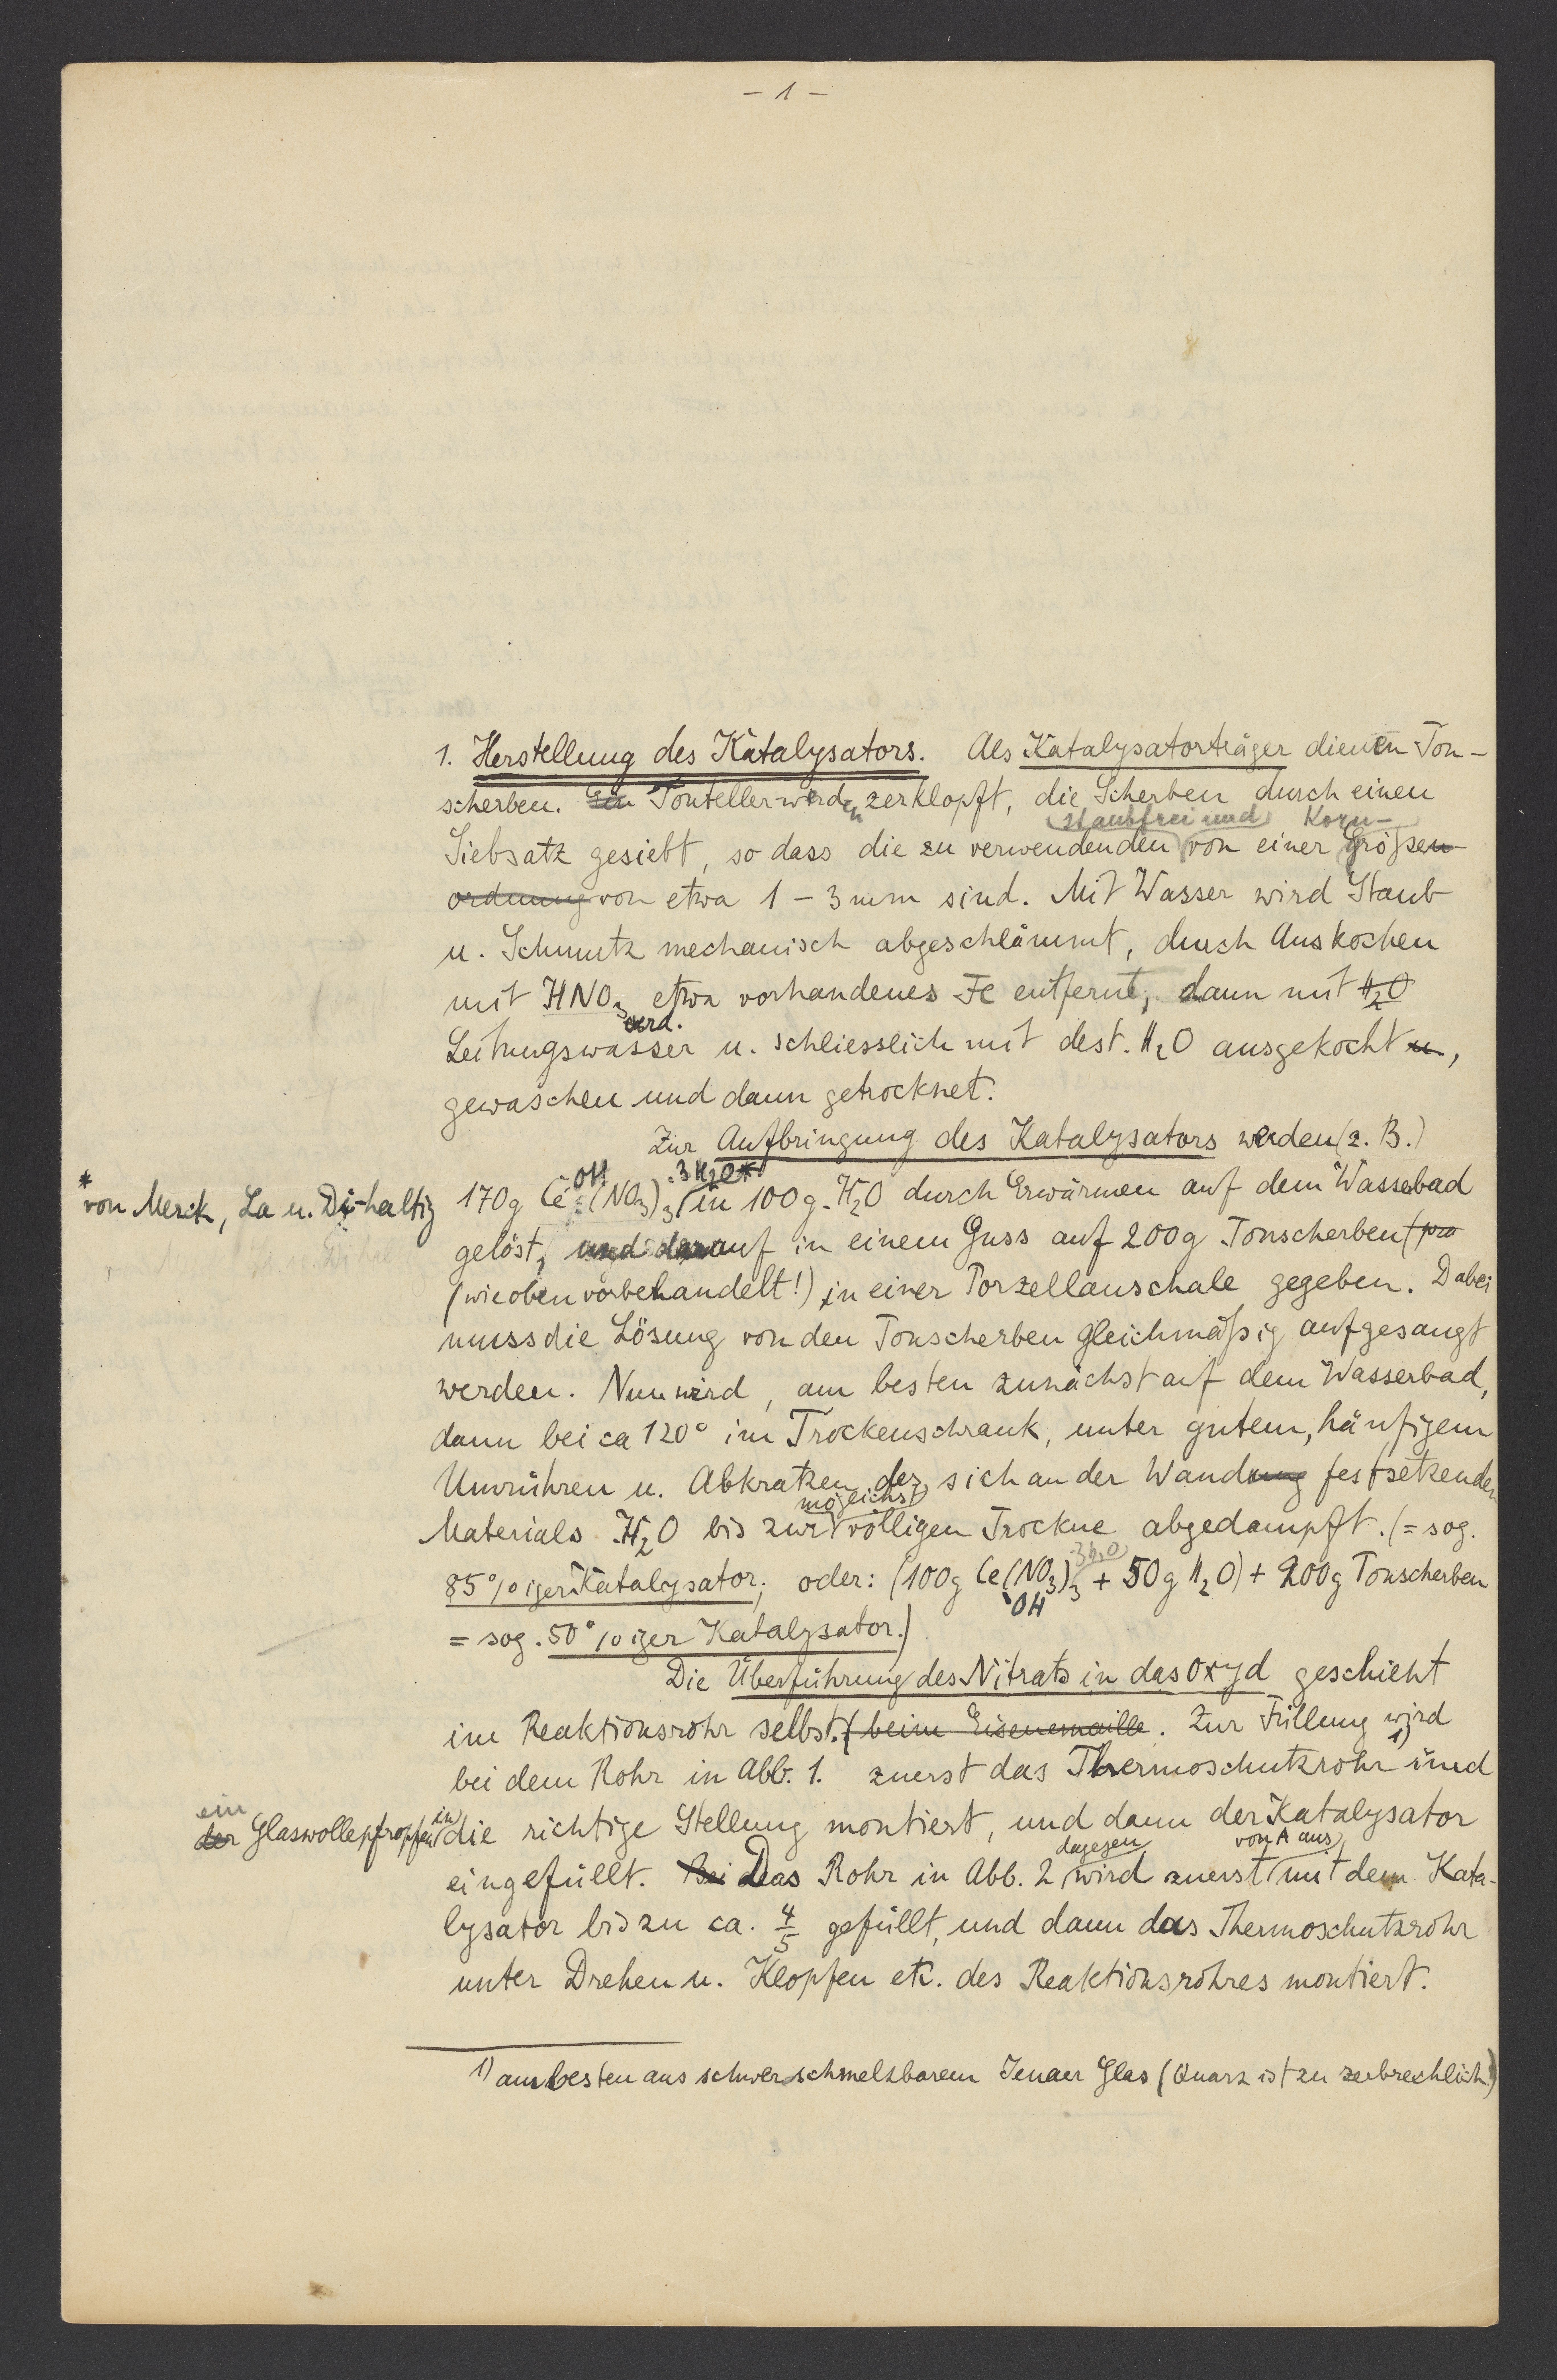 - 1 -
1. Herstellung des Katalysators. Als Katalysatorträger dienen Ton-
scherben. Ein Tonteller werden zerklopft, die Scherben durch einen
staubfrei und Korn-
Siebsatz gesiebt, so dass die zu verwendenden von einer Größen-
ordnung von etwa 1 - 3 mm sind. Mit Wasser wird Staub
u. Schmutz mechanisch abgeschlämmt, durch Auskochen
mit HNO3 etwa vorhandenes Fe entfernt, dann mit H2O
verd.
Leitungswasser u. schliesslich mit dest. H2O ausgekocht u,
gewaschen und dann getrocknet.
Zur Aufbringung des Katalysators werden (z. B.)
OH .3H2O*)
* von Merck, La u. Di-haltig
170g Ce (NO3)3 in 100g H2O durch Erwärmen auf dem Wasserbad
gelöst, und darauf in einem Guss auf 200g Tonscherben
(wie oben vorbehandelt!) in einer Porzellanschale gegeben. Dabei
muss die Lösung von den Tonscherben gleichmäßig aufgesaugt
werden. Nun wird, am besten zunächst auf dem Wasserbad,
dann bei ca 120° im Trockenschrank, unter gutem, häufigem
Umrühren u. Abkratzen des sich an der Wandung festsetzenden
möglichst
Materials H2O bis zur völligen Trockne abgedampft. (= sog.
3H2O
85%iger Katalysator; oder: (100g Ce(NO3)3 + 50g H2O) + 200g Tonscherben
OH
= sog. 50%iger Katalysator.)
Die Überführung des Nitrats in das Oxyd geschieht
im Reaktionsrohr selbst. (beim Eisenemaille. Zur Füllung wird
bei dem Rohr in Abb. 1. zuerst das Thermoschutzrohr 1) und
ein
der Glaswollepfropfen in
die richtige Stellung montiert, und dann der Katalysator
dagegen von A aus
eingefüllt. Bei Das Rohr in Abb. 2 wird zuerst mit dem Kata-
lysator bis zu ca. 4/5 gefüllt, und dann das Thermoschutzrohr
unter Drehen u. Klopfen etc. des Reaktionsrohres montiert.
1) am besten aus schwerschmelzbarem Jenaer Glas (Quarz ist zu zerbrechlich!)